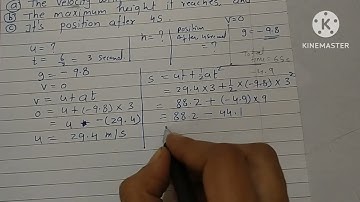 (a) The velocity wi
(b) The maximum height it reaches, and
(c) It's position after 4S
u = ?
t = 6/2 = 3 second
g = -9.8
v = 0
v = u + at
0 = u + (-9.8) × 3
= u - (29.4)
u = 29.4 m/s
h = ?
Position after 4 second = ?
v = 0
g = -9.8
Total
S = ut + 1/2 at²
= 29.4 × 3 + 1/2 × (-9.8) × 3²
-4.9
= 88.2 + (-4.9) × 9
= 88.2 - 44.1
KINEMASTER